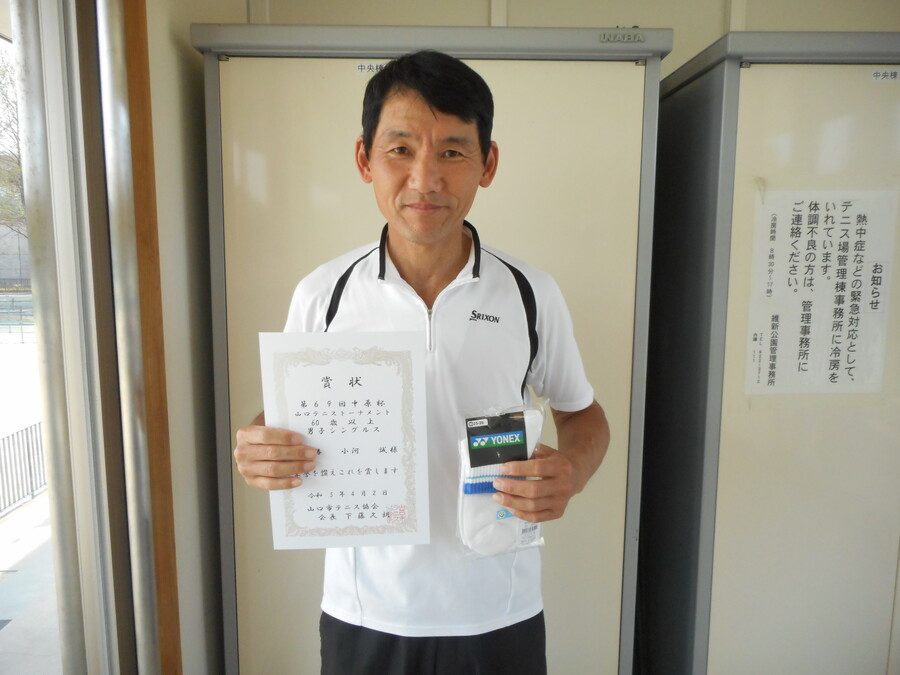 INABA
中央棟
中央棟
お知らせ
熱中症などの緊急対応として、
テニス場管理棟事務所に冷房を
いれています。
体調不良の方は、管理事務所に
ご連絡ください。
維新公園管理事務所
SRIXON
賞状
第69回中原杯
山口テニストーナメント
60歳以上
男子シングルス
小河 誠様
を讃えこれを賞します
山口市テニス協会
会長
YONEX